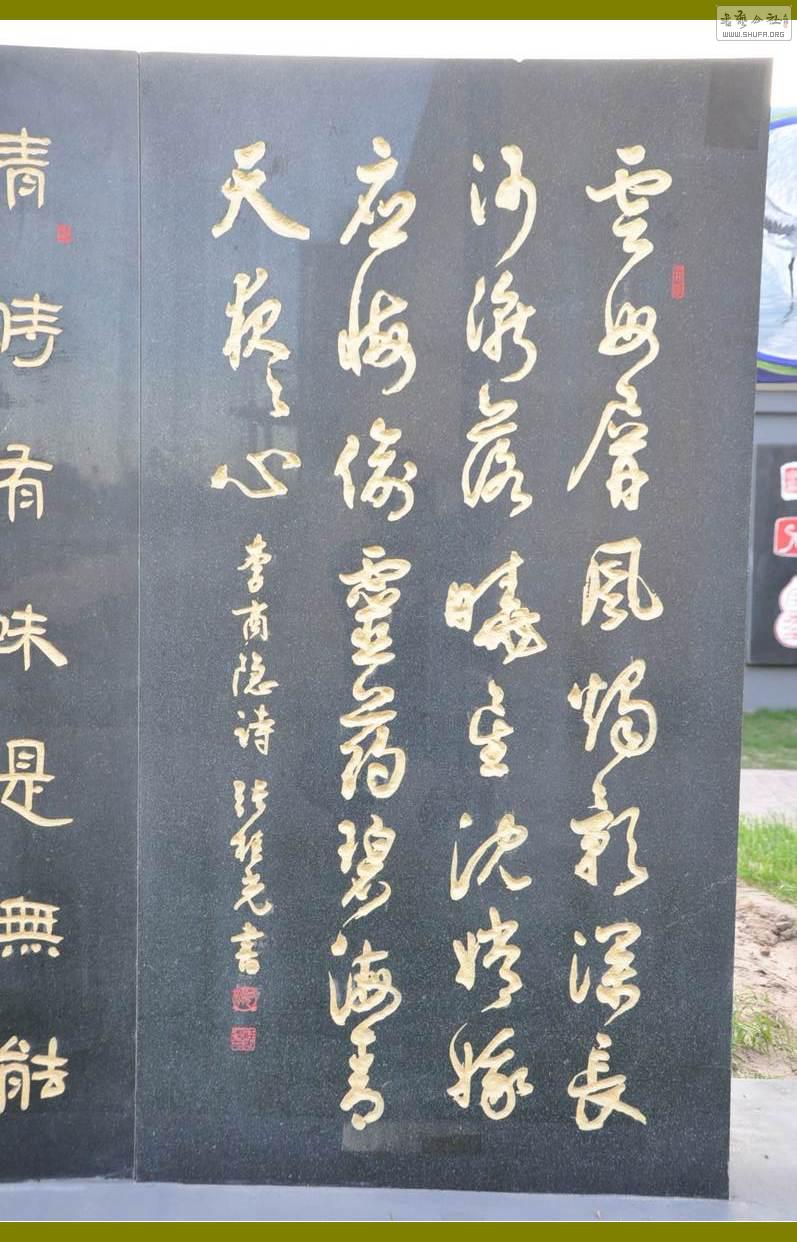 雲母屏風燭影深長
河漸落曉星沈嫦娥
应悔偷靈药碧海青
天夜々心
李商隐诗 张桂光書
清時有味是無能
书艺公社
WWW.SHUFA.ORG